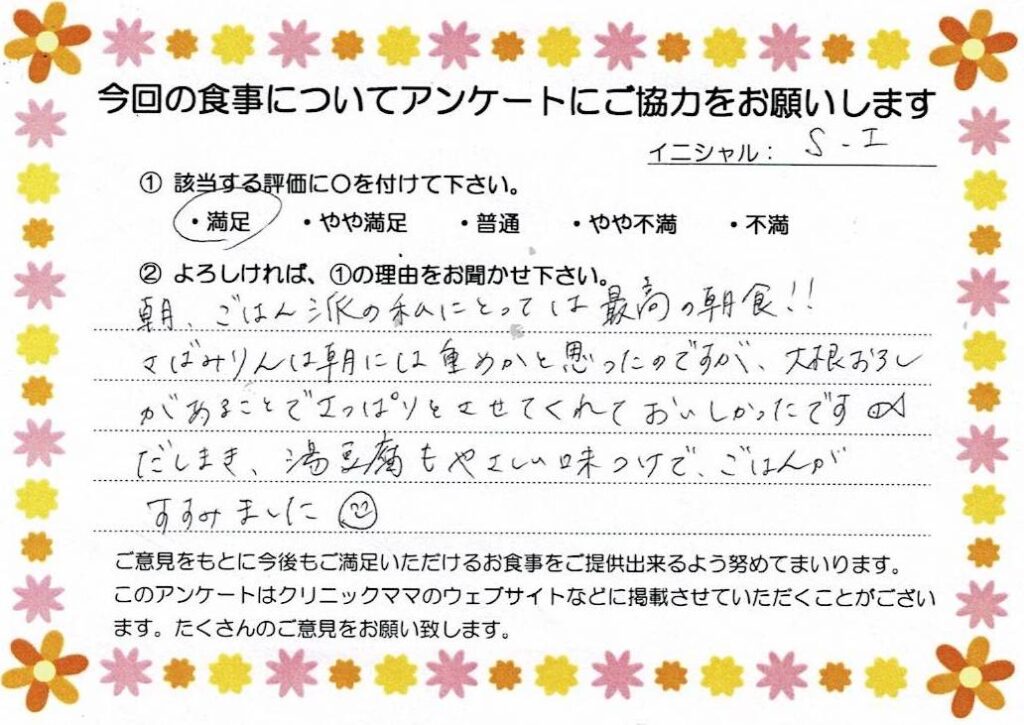 今回の食事についてアンケートにご協力をお願いします
イニシャル： S - I
① 該当する評価に○を付けて下さい。
・満足 ・やや満足 ・普通 ・やや不満 ・不満
② よろしければ、①の理由をお聞かせ下さい。
朝、ごはん派の私にとっては最高の朝食!!
さばみりんは朝には重めかと思ったのですが、大根おろし
があることでさっぱりとさせてくれておいしかったです
だしまき、湯豆腐もやさしい味つけで、ごはんが
すすみました
ご意見をもとに今後もご満足いただけるお食事をご提供出来るよう努めてまいります。
このアンケートはクリニックママのウェブサイトなどに掲載させていただくことがござい
ます。たくさんのご意見をお願い致します。